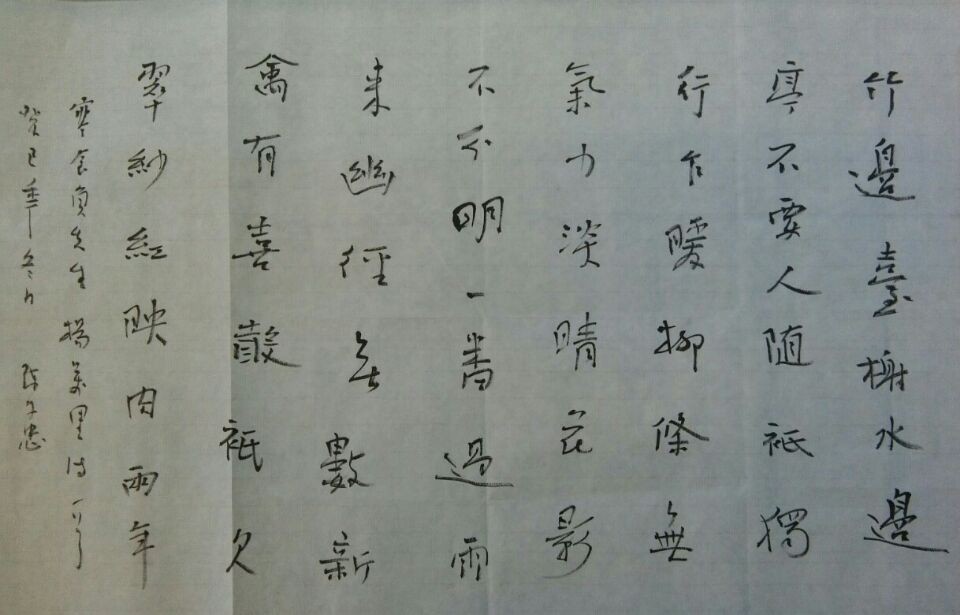 竹邊臺榭水邊
亭不要人随衹獨
行乍暖柳條無
氣力淡晴花影
不分明一番過雨
来幽徑無數新
禽有喜聲衹欠
翠紗紅映肉兩年
寒食負先生 楊萬里诗一首
癸巳年冬月